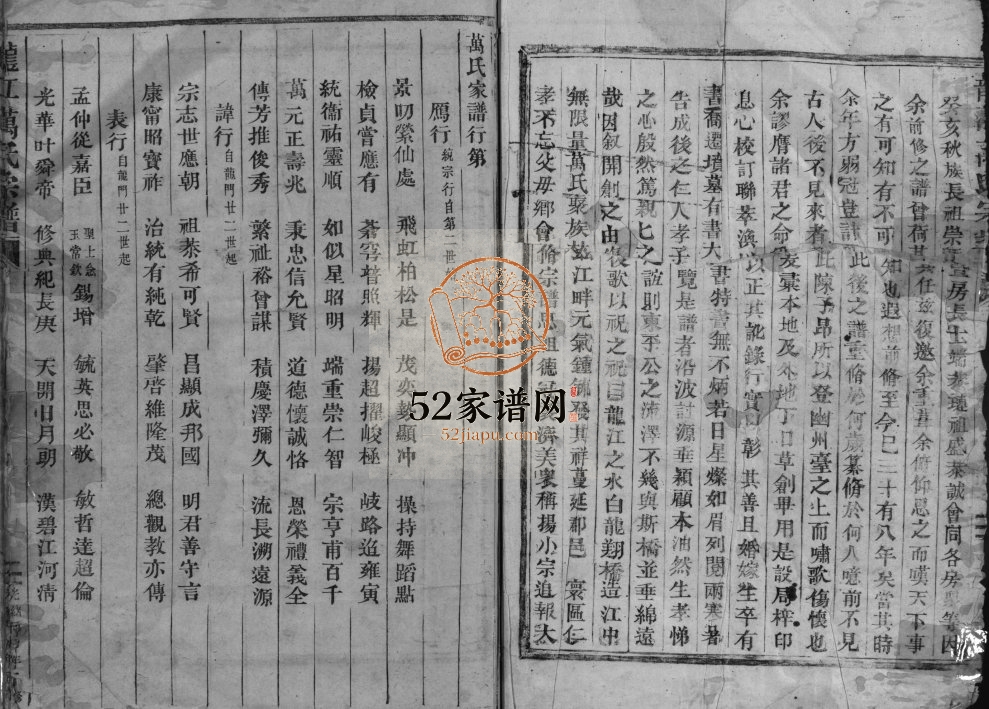 癸亥秋族長祖崇
余前修之譜曾荷其任茲復邀余重書余俯仰思之而嘆天下事
之有可知有不可知也遐想前脩至今已三十有八年矣當其時
余年方弱冠豈計此後之譜重脩於何歲纂脩於何人噫前不見
古人後不見來者此陳子昂所以登幽州臺之上而嘯歌傷懷也
余謬膺諸君之命爰彙本地及外地丁口草創畢用是設局梓印
息心校訂聯萃渙以正其訛錄行實以彰其善且婚嫁生卒有
書喬遷墳墓有書大書特書無不炳若日星燦如眉列閱兩寒暑
告成後之仁人孝子覽是譜者沿波討源垂穎顧本油然生孝悌
之心殷然篤親匕之誼則東平公之沛澤不幾與斯橋並垂綿遠
哉因叙開創之由復歌以祝之祝曰龍江之水白龍翔橋造江中
無限量萬氏聚族 江畔元氣鍾 發其祥蔓延郡邑 寰區仁
孝不忘父母鄉會脩宗譜思祖德 濟美 稱揚小宗追報大
萬氏家譜行第
鴈行 統宗行自第二世
景叨縈仙處 飛虹柏松是 茂奕 顯冲 操持舞蹈點
檢貞當應有 蒼穹普照輝 揚超擢峻極 岐路迨雍寅
統衞祐靈順 如似星昭明 端重崇仁智 宗亨甫百千
萬元正壽兆 秉忠信允賢 道德懷誠恪 恩榮禮義全
傳芳推俊秀 繁祉裕曾謀 積慶澤彌久 流長溯遠源
諱行 自龍門廿二世起
宗志世應朝 祖恭希可賢 昌顯成邦國 明君善守言
康甯昭寶祚 治統有純乾 肇啓維隆茂 總觀教亦傳
表行 自龍門廿二世起
孟仲從嘉臣 聖上念玉常欽錫增 毓英思必敬 敏哲達超倫
光華叶舜帝 修典紀長庚 天開日月朗 漢碧江河清
龍江萬氏宗譜
52家谱网
52jiapu.com